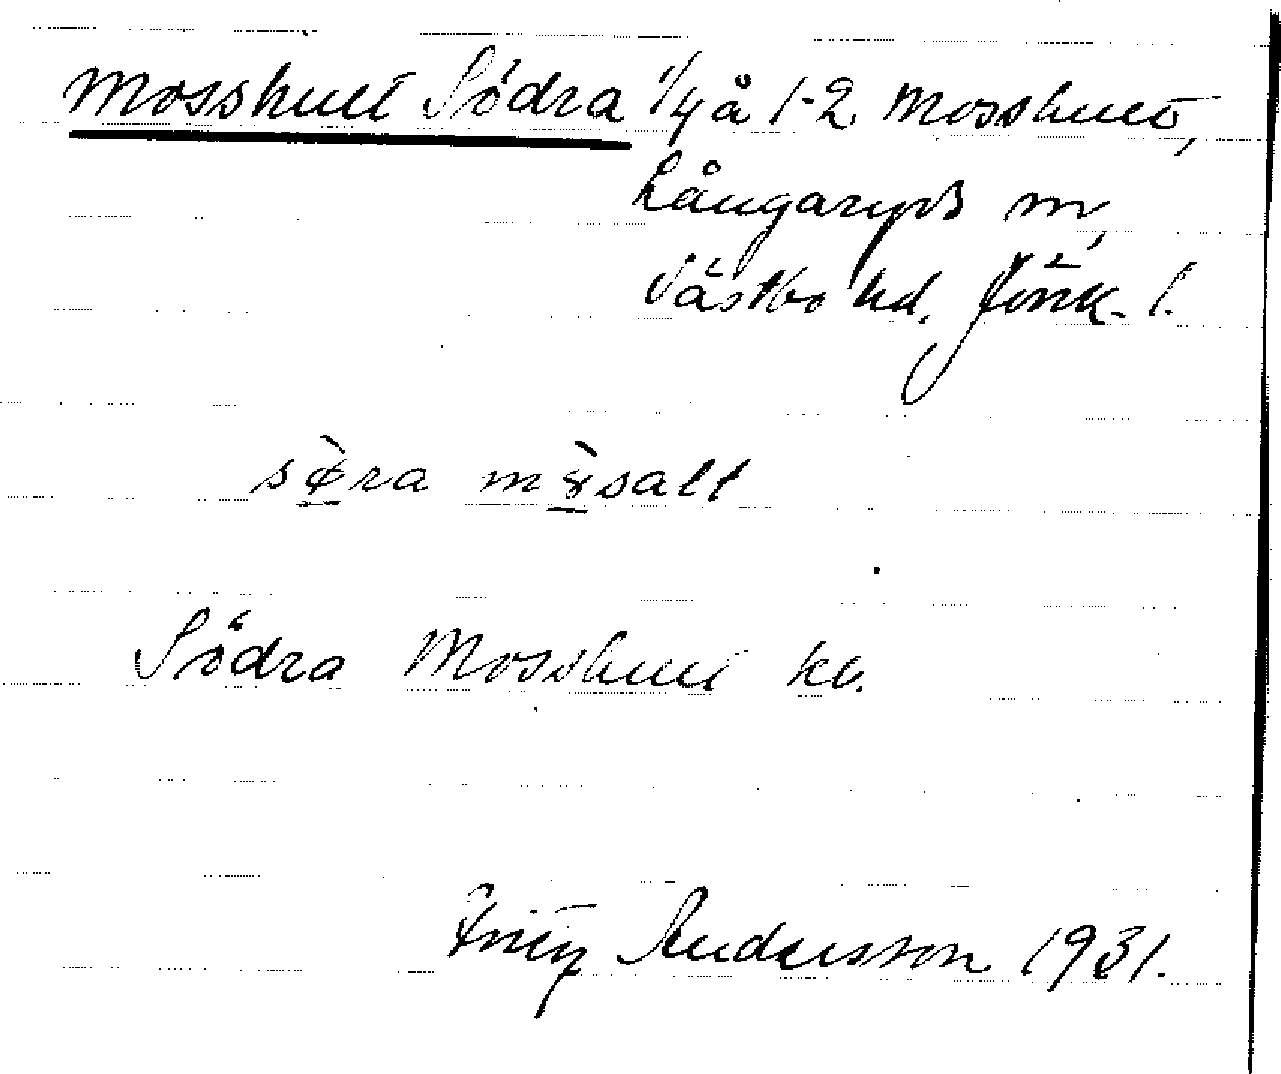 Mosshult Södra 1/4 å 1-2 Mosshult,
Långaryds sn,
Västbo hd, Jönk. l.
sø̀ra mɤ̀salt
Södra Mosshult kb.
Fritz Andersson 1931.